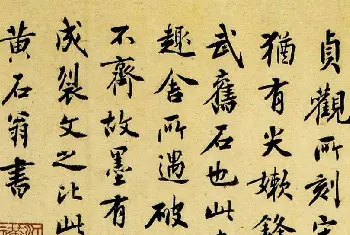 貞觀所刻
猶有尖嫩鋒
武舊石也此
趣舍所遇破
不齊故墨有
成裂文之比此
黄石翁書